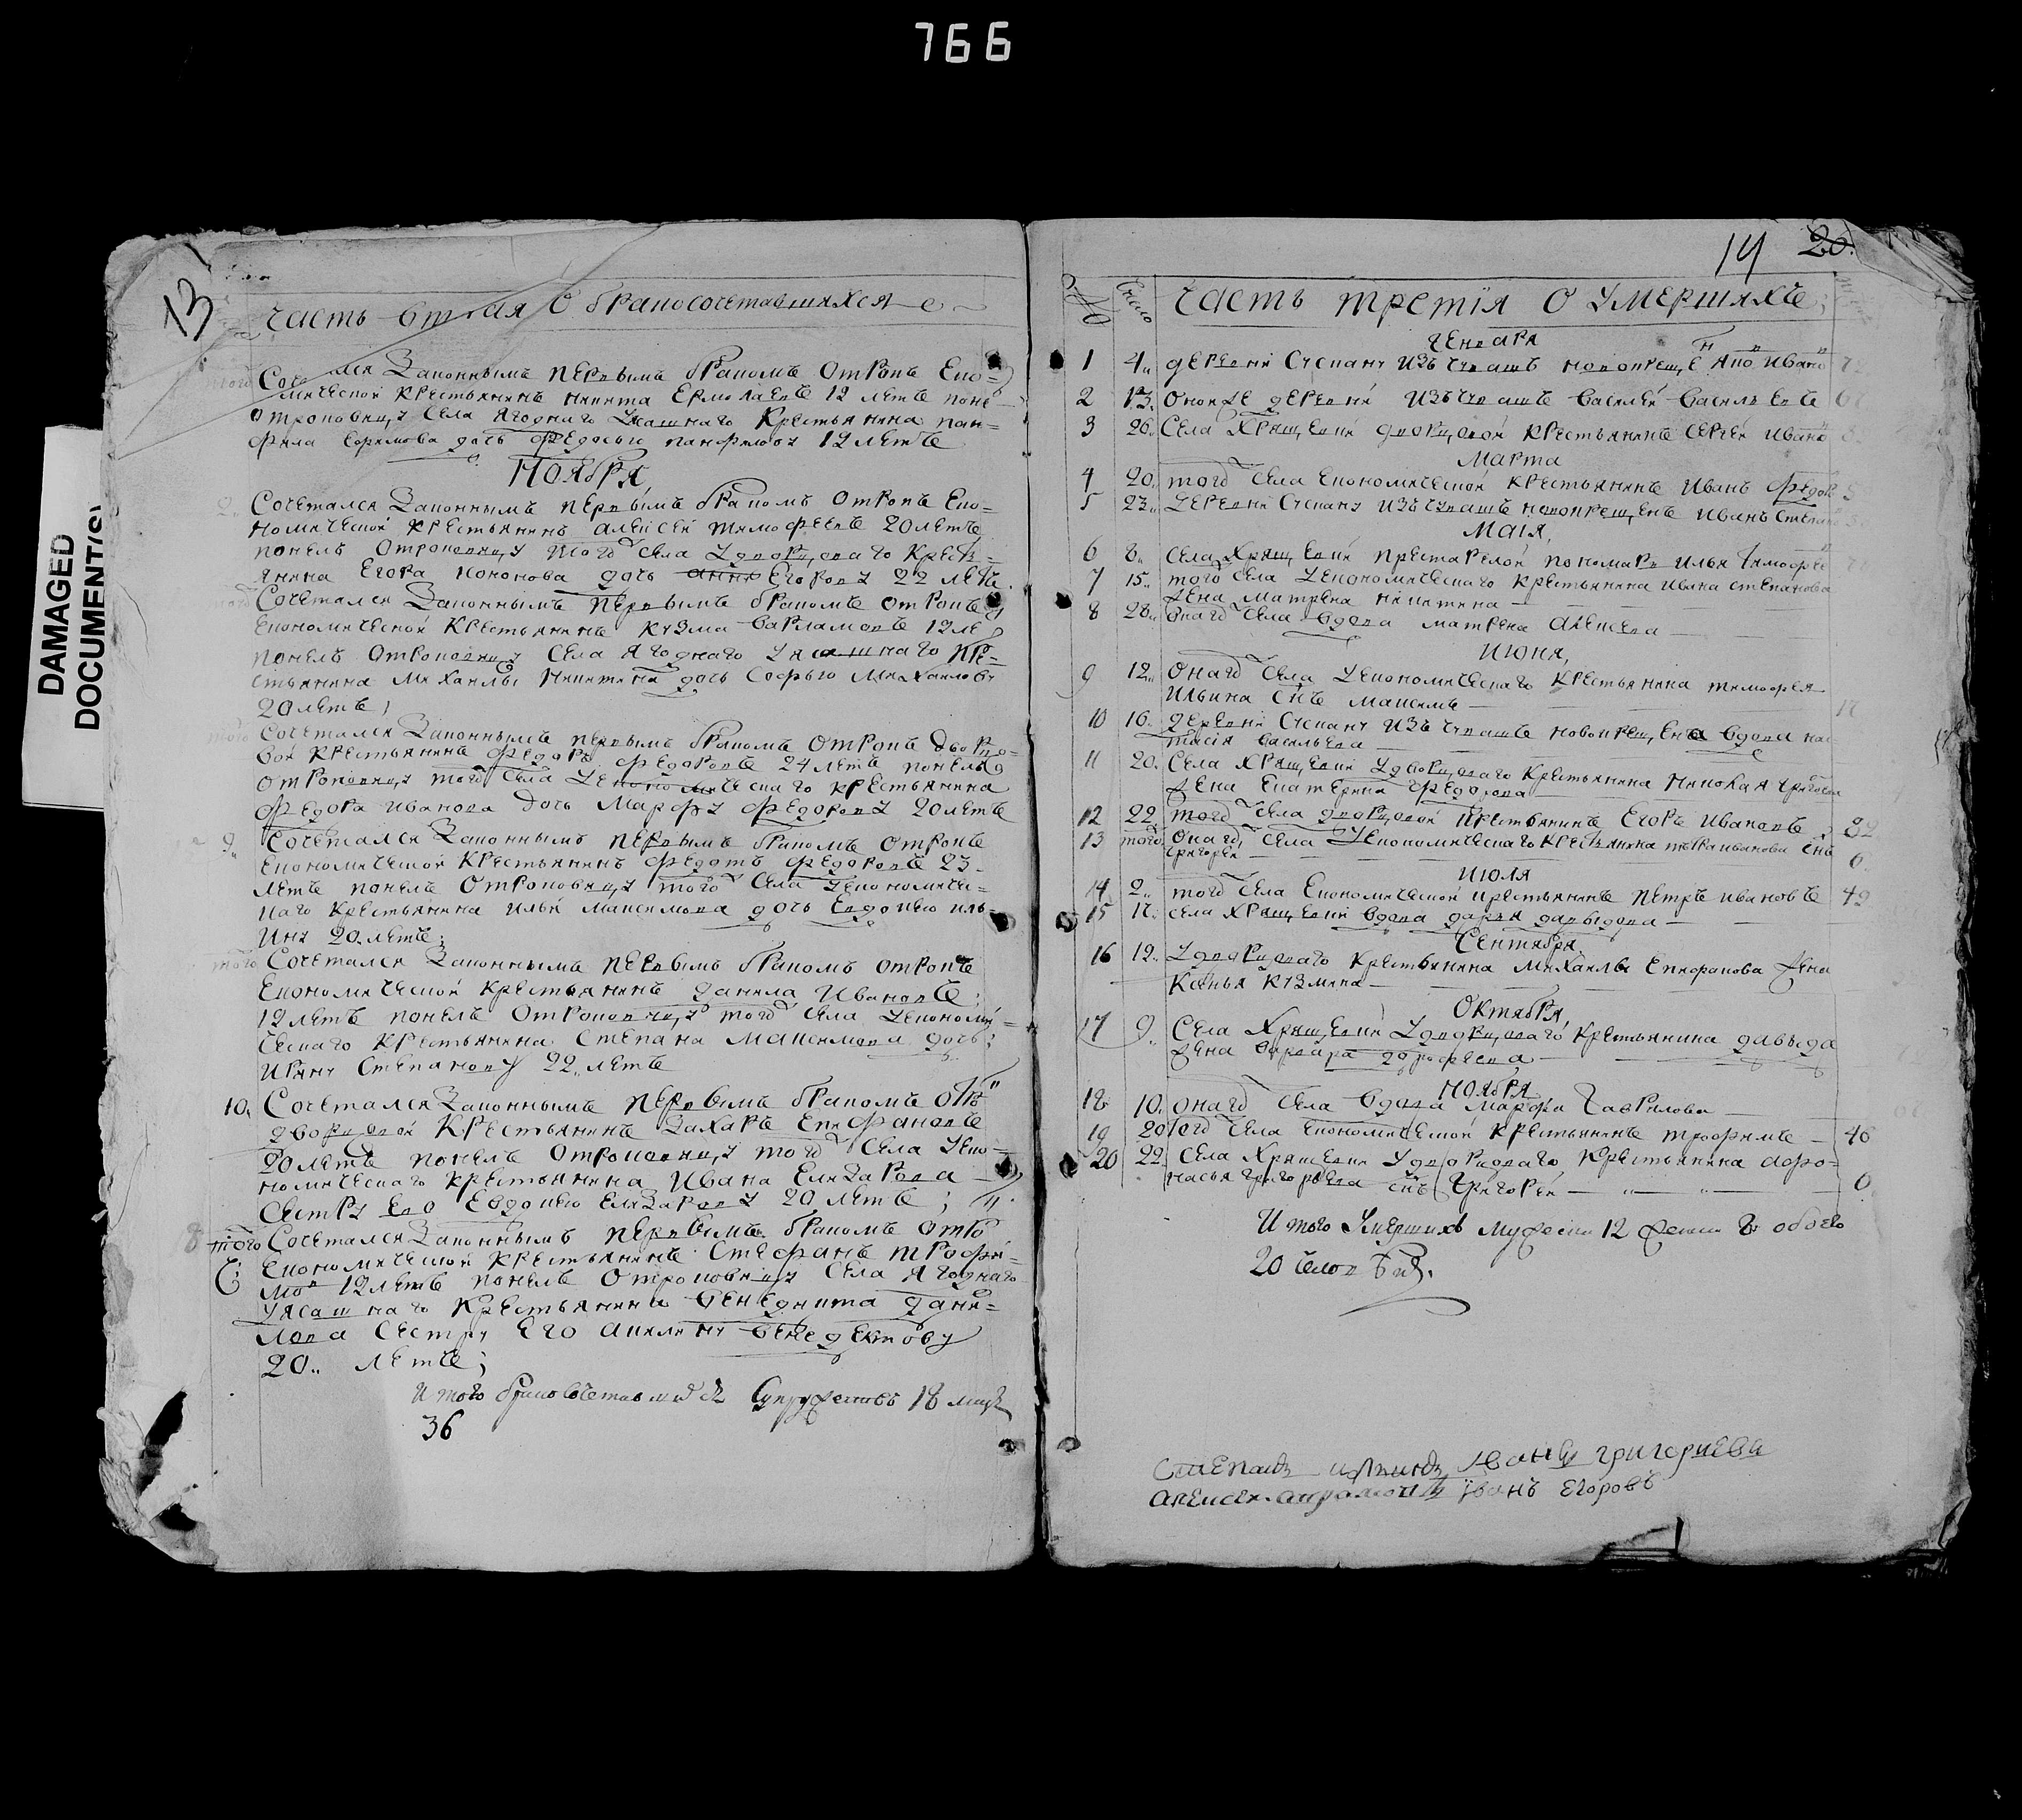 766
DAMAGED
DOCUMENT(S)
13
часть вторая О бракосочетавшихся
того Сочетался Законнымъ первымъ бракомъ отрокъ Еко=
мической крестьянинъ никита Ермолаевъ 19 летъ поне
отроковицу села Ягоднаго Уясашнаго Крестьянина пан=
фила дочь Федосью панфилову 19 летъ
Ноября
2 Сочетался Законнымъ первымъ бракомъ Отрокъ Еко=
номической крестьянинъ алексей тимофеевъ 20 летъ
понелъ Отроковицу того села Удворцоваго Крестъ=
янина Егора кононова дочь анну Егорову 22 летъ
того Сочетался Законнымъ первымъ бракомъ отрокъ
Економической Крестьянинъ кузма варламовъ 19 ле
понелъ Отроковицу села Ягоднаго Уясашнаго кре=
стьянина Михаилы никитина дочь Софью Михаилову
20 летъ;
того Сочетался Законнымъ первымъ бракомъ Отрокъ дворцо=
вой крестьянинъ Федоръ Федоровъ 24 летъ понелъ
отроковицу того села Уекономическаго крестьянина
Федора иванова дочь Марфу Федорову 20 летъ
9 Сочетался Законнымъ первымъ бракомъ Отрокъ
Економической Крестьянинъ Федотъ Федоровъ 23
летъ понелъ Отроковицу того села Уекономичес=
каго крестьянина ильи максимова дочь Евдокею иль=
ину 20 летъ;
того Сочетался Законнымъ первымъ бракомъ отрокъ
Економической крестьянинъ данила Ивановъ;
19 летъ понелъ Отроковицу того села Уекономи=
ческаго крестьянина Степана максимова дочь;
Ирину Степанову 22 летъ
10 Сочетался Законнымъ первымъ бракомъ Отро
дворцовой Крестьянинъ Захаръ Епифановъ
20 летъ понелъ Отроковицу того села Уеко=
номическаго крестьянина Ивана Елизарова
Сестру его Евдокею Елизарову 20 летъ;
того Сочетался Законнымъ первымъ бракомъ Отро
Економической крестьянинъ Стефанъ трофи=
мов 19 летъ понелъ Отроковицу Села Ягоднаго
Уясашнаго крестьянина венедикта дани=
лова Сестру Его акилину венедектову
20 летъ;
Итого бракосочетавшихся Супружествъ 18 лицъ
36
14 20
№ Число Часть третія О умершихъ;
генваря
1 4 деревни Степану Изъ чувашъ новокреще Иванов
2 13 Оной же деревни Изъ чувашъ василей васильевъ
3 26 Села Хрящевки дворцовой крестьянинъ Сергей Ивано
Марта
4 20 того Села Економической крестьянинъ Иванъ Федор
5 23 деревни Степану Изъ чувашъ новокрещенъ Иванъ Степано
Маія,
6 8 Села Хрящевки престарелой пономарь Илья тимофее
7 15 того Села Уекономическаго крестьянина Ивана степанова
жена матрена никитина
8 28 онаго Села вдова матрена алексеева
Июня,
9 12 Онаго Села Уекономическаго крестьянина тимофея
Ильина Снъ максимъ
10 16 деревни Степану Изъ чувашъ новокрещена вдова нас
тасія васильева
11 20 Села Хрящевки Удворцоваго Крестьянина николая григорьева
жена Екатерина Федорова
12 22 того Села дворцовой крестьянинъ Егоръ Ивановъ 32
13 того Онаго Села Уекономическаго Крестьянина петра иванова снъ
григорей 6
Июля
14 2 того Села Економической крестьянинъ петръ ивановъ 49
15 17 села Хрящевки вдова дарья давыдова
Сентября
16 12 Удворцоваго Крестьянина Михаилы Епифанова жена
Ксенья кузмина
Октября,
17 9 Села Хрящевки Удворцоваго Крестьянина давыда
жена варвара дорофеева
Ноября
18 10 онаго Села вдова марфа Гаврилова
19 20 того Села Економической крестьянинъ трофимъ 46
20 22 Села Хрящевки Удворцоваго Крестьянина афо=
насья григорьева снъ григорей 6
Итого Умершихъ мужеска 12 женска 8 обоего
20 человекъ
Степанъ Иванъ григориевъ
алексеи Иванъ Егоровъ